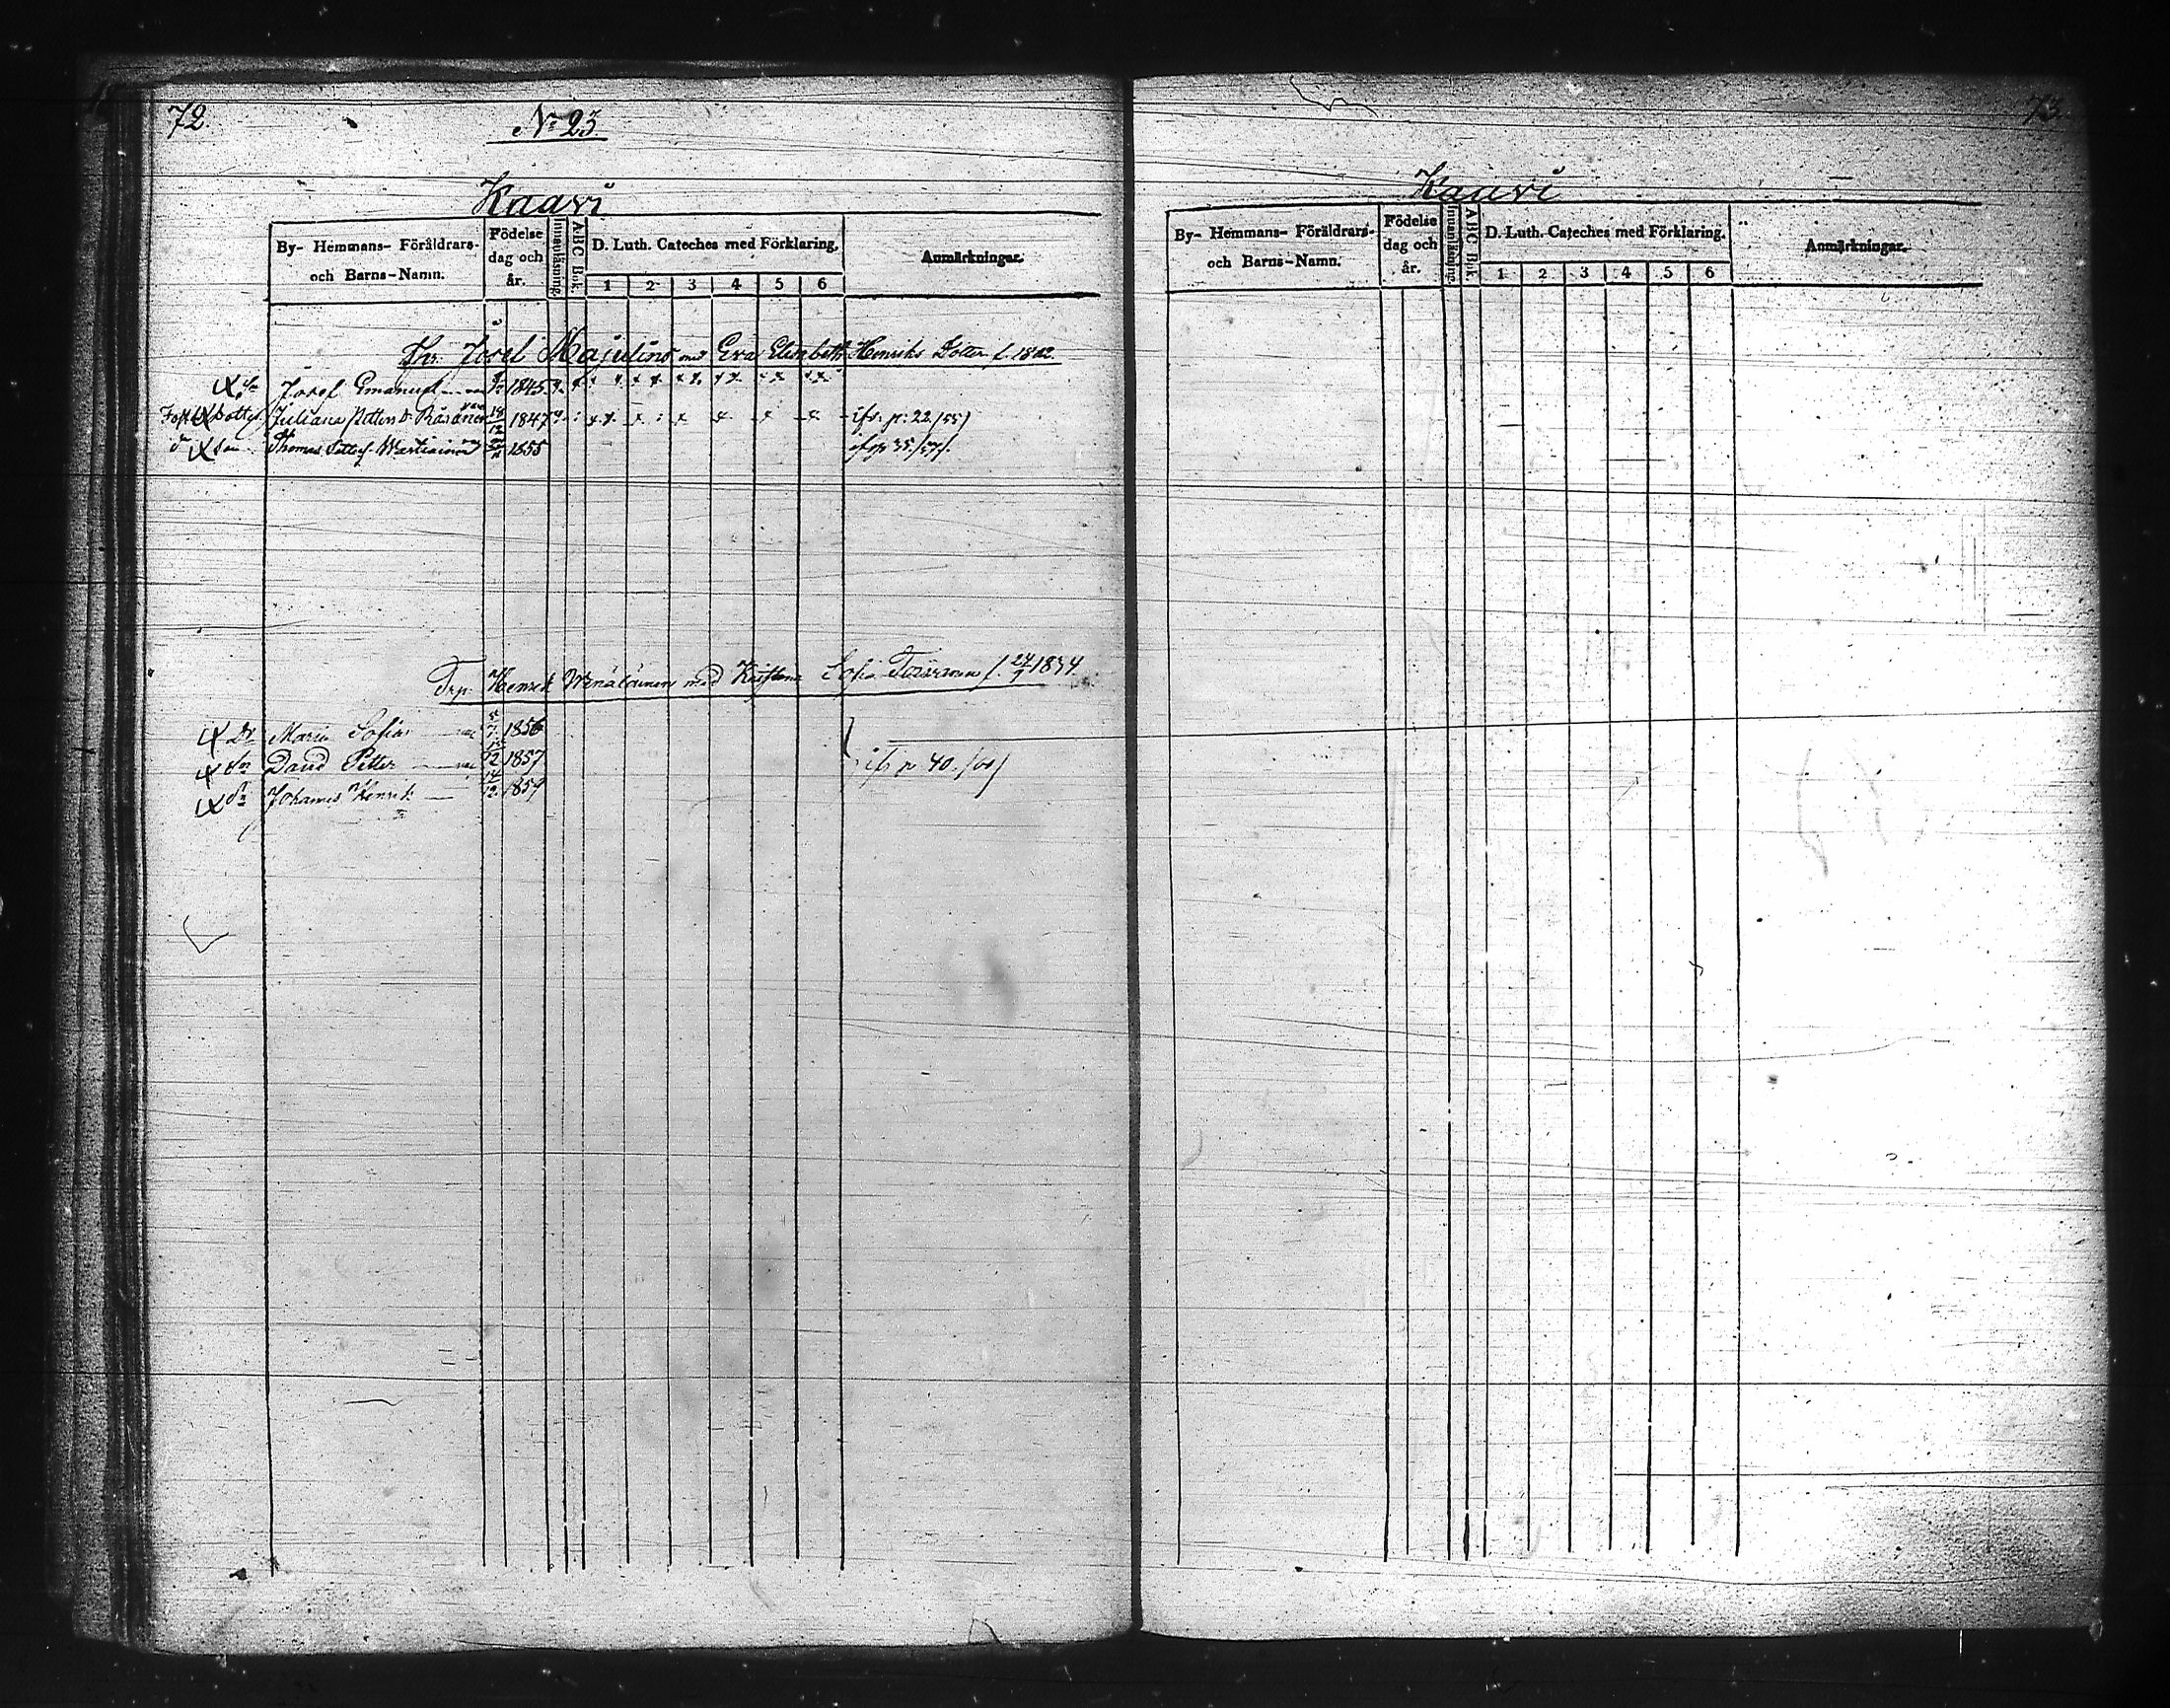 72.
No 23.
Kaavi
By- Hemmans- Föräldrars- och Barns-Namn.
Födelse dag och år.
Innanläsning.
ABC Bok.
D. Luth. Cateches med Förklaring.
1 2 3 4 5 6
Anmärkningar.
Josef med Eva Elisabeth Henriks Dotter f. 1802.
Josef Emanuel 1845
Juliana Petters D. Räsänen 18/12 1847 p: 22./55/
Thomas 1855 35./57/.
Trp. Henrik Wenäläinen med Kristina Sofia f. 24/9 1834.
Maria Sofia 5/7 1856
David Petter 12 1857 p 40./60/
Johannes Henrik 14/12 1859
73.
Kaavi
By- Hemmans- Föräldrars- och Barns-Namn.
Födelse dag och år.
Innanläsning.
ABC Bok.
D. Luth. Cateches med Förklaring.
1 2 3 4 5 6
Anmärkningar.